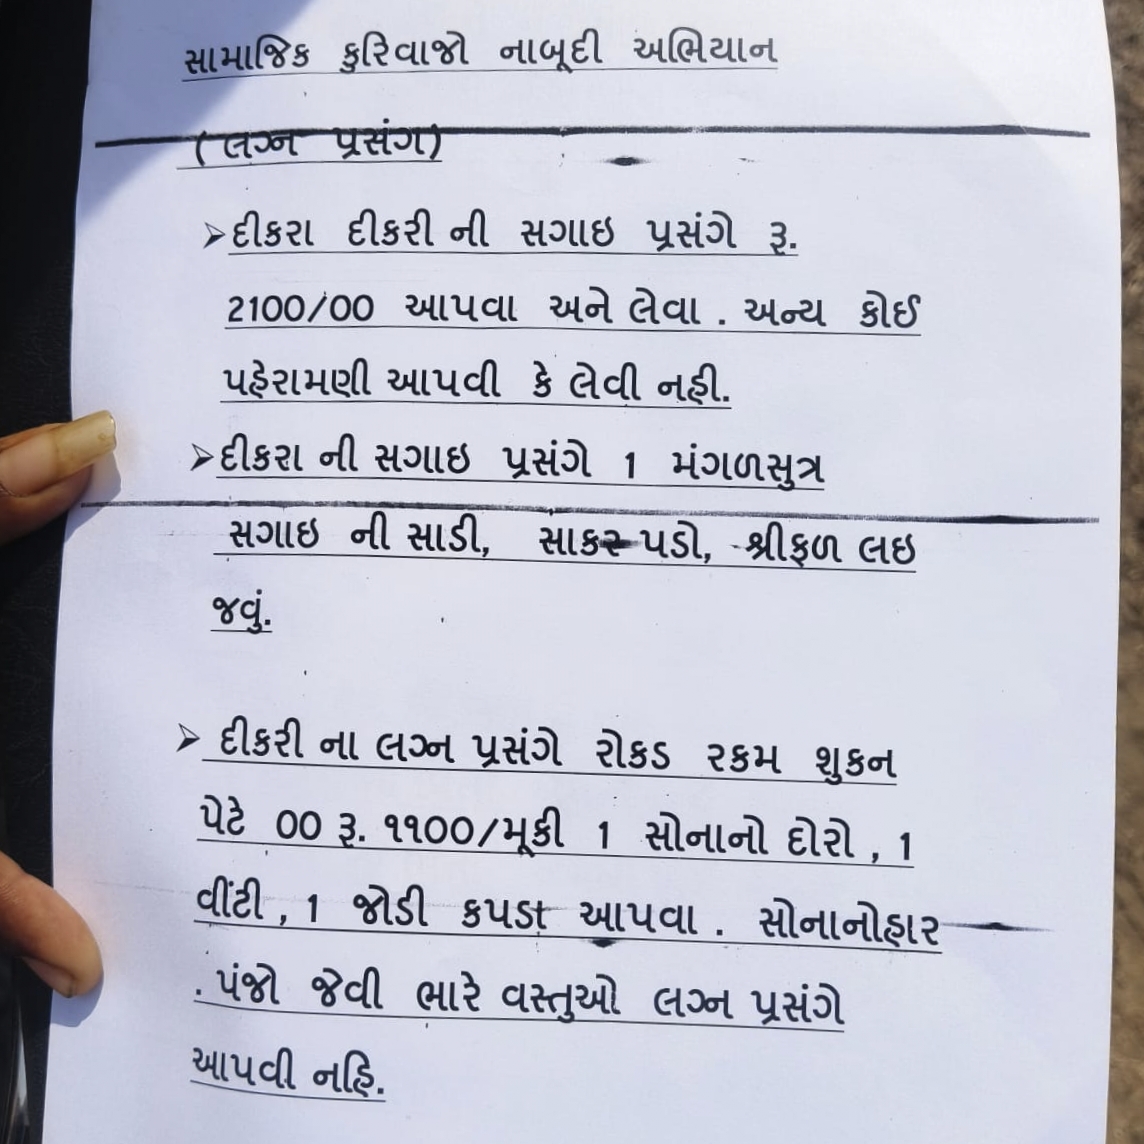 સામાજિક કુરિવાજો નાબૂદી અભિયાન
(લગ્ન પ્રસંગ)
➢દીકરા દીકરી ની સગાઇ પ્રસંગે રૂ.
2100/00 આપવા અને લેવા . અન્ય કોઈ
પહેરામણી આપવી કે લેવી નહી.
➢દીકરા ની સગાઇ પ્રસંગે 1 મંગળસુત્ર
સગાઇ ની સાડી, સાકર પડો, શ્રીફળ લઇ
જવું.
➢ દીકરી ના લગ્ન પ્રસંગે રોકડ રકમ શુકન
પેટે 00 રૂ. ૧૧00/મૂકી 1 સોનાનો દોરો , 1
વીંટી , 1 જોડી કપડા આપવા . સોનાનોહાર
. પંજો જેવી ભારે વસ્તુઓ લગ્ન પ્રસંગે
આપવી નહિ.